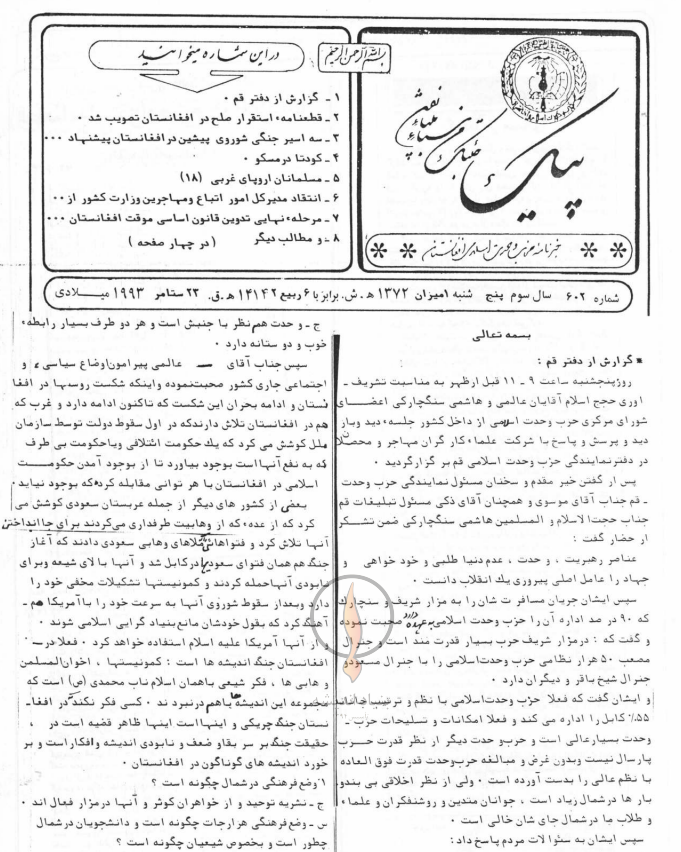 بسم الله الرحمن الرحیم
پیک
خبرنامه حزب وحدت اسلامی افغانستان
در این شماره میخوانید
۱ - گزارش از دفتر قم ۰
۲ - قطعنامه استقرار صلح در افغانستان تصویب شد ۰
۳ - سه اسیر جنگی شوروی پیشین در افغانستان پیشنهاد ۰۰۰
۴ - کودتا در مسکو ۰
۵ - مسلمانان اروپای غربی (۱۸)
۶ - انتقاد مدیرکل امور اتباع ومهاجرین وزارت کشور از ۰۰
۷ - مرحله نهایی تدوین قانون اساسی موقت افغانستان ۰۰۰
۸ - و مطالب دیگر ( در چهار صفحه )
شماره ۶۰۲ سال سوم پنج شنبه ۱میزان ۱۳۷۲ ه .ش. برابر با ۶ ربیع۲ ۱۴۱۴ ه .ق. ۲۳ ستامبر ۱۹۹۳ میلادی
بسمه تعالی
■ گزارش از دفتر قم :
روزپنجشنبه ساعت ۹ - ۱۱ قبل ازظهر به مناسبت تشریف -
اوری حجج اسلام آقایان عالمی و هاشمی سنگچارکی اعضای
شورای مرکزی حزب وحدت اسلامی از داخل کشور جلسه دید وباز
دید و پرسش و پاسخ با شرکت علماء کارگران مهاجر و محصلان
در دفتر نمایندگی حزب وحدت اسلامی قم بر گزار گردید ۰
پس از گفتن خیر مقدم و سخنان مسئول نمایندگی حزب وحدت
- قم جناب آقای موسوی و همچنان آقای ذکی مسئول تبلیغات قم
جناب حجت الاسلام و المسلمین هاشمی سنگچارکی ضمن تشکر
از حضار گفت :
عناصر رهبریت ، و حدت ، عدم دنیا طلبی و خود خواهی و
جهاد را عامل اصلی پیروزی یک انقلاب دانست ۰
سپس ایشان جریان مسافرت شان را به مزار شریف و سنچارک
که ۹۰ در صد اداره آن را حزب وحدت اسلامی به عهده دارد صحبت نموده
و گفت که : درمزار شریف حزب بسیار قدرت مند است و جنرال
مصعب ۵۰ هزار نظامی حزب وحدت اسلامی را با جنرال مسعود و
جنرال شیخ باقر و دیگران دارد ۰
و ایشان گفت که فعلا حزب وحدت اسلامی با نظم و ترتیب
۵۵٪ کابل را اداره می کند و فعلا امکانات و تسلیحات حزب -
وحدت بسیار عالی است و حزب وحدت دیگر از نظر قدرت حزب
پارسال نیست وبدون غرض و مبالغه حزب وحدت قدرت فوق العاده
با نظم عالی را بدست آورده است ۰ ولی از نظر اخلاقی بی بندو
بار ها درشمال زیاد است ، جوانان متدین و روشنفکران و علماء
و طلاب ما در شمال جای شان خالی است ۰
سپس ایشان به سئوالات مردم پاسخ داد :
ج - و حدت هم نظر با جنبش است و هر دو طرف بسیار رابطه
خوب و دوستانه دارد ۰
سپس جناب آقای عالمی پیرامون اوضاع سیاسی و
اجتماعی جاری کشور صحبت نموده واینکه شکست روسها در افغا
نستان و ادامه بحران این شکست که تاکنون ادامه دارد و غرب که
هم در افغانستان تلاش دارند که در اول سقوط دولت توسط سازمان
ملل کوشش می کرد که یک حکومت ائتلافی ویا حکومت بی طرف
که به نفع آنها است بوجود بیاورد تا از بوجود آمدن حکومت
اسلامی در افغانستان با هر توانی مقابله کرده که بوجود نیاید ۰
بعضی از کشور های دیگر از جمله عربستان سعودی کوشش می
کرد که از عده که از وهابیت طرفداری می کردند برای جاانداختن
آنها تلاش کرد و فتواهای ملاهای وهابی سعودی دادند که آغاز
جنگ هم همان فتوای سعودیها در کابل شد و آنها با لای شیعه وبرای
نابودی آنها حمله کردند و کمونیستها تشکیلات مخفی خود را
دارد وبعد از سقوط شوروی آنها به سرعت خود را با آمریکا هم -
آهنگ کرد که بقول خودشان مانع بنیاد گرایی اسلامی شوند ۰
از آنها آمریکا علیه اسلام استفاده خواهد کرد ۰ فعلا در -
افغانستان جنگ اندیشه ها است : کمونیستها ، اخوان المسلمن
و هابی ها ، فکر شیعی با همان اسلام ناب محمدی (ص) است که
مجموعه این اندیشه ها باهم در نبرد ند ۰ کسی فکر نکند در افغا -
نستان جنگ چریکی و اینها است اینها ظاهر قضیه است در ،
حقیقت جنگ بر سر بقاو ضعف و نابودی اندیشه وافکار است و بر
خورد اندیشه های گوناگون در افغانستان ۰
۱- وضع فرهنگی درشمال چگونه است ؟
ج - نشریه توحید و از خواهران کوثر و آنها درمزار فعال اند ۰
س - وضع فرهنگی هزارجات چگونه است و دانشجویان درشمال
چطور است و بخصوص شیعیان چگونه است ؟